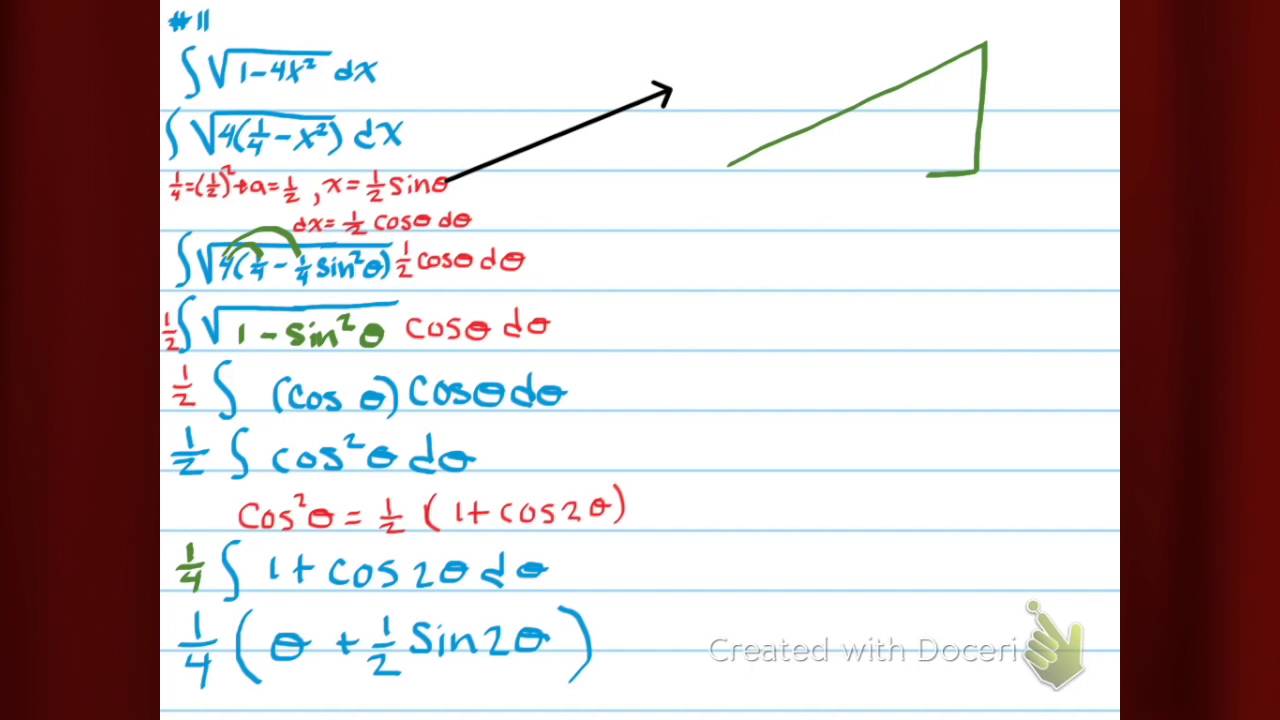 #11
∫ √(1-4x²) dx
∫ √(4(1/4 - x²)) dx
1/4 = (1/2)² → a = 1/2, x = 1/2 sinθ
dx = 1/2 cosθ dθ
∫ √(4(1/4 - 1/4 sin²θ)) 1/2 cosθ dθ
1/2 ∫ √(1 - sin²θ) cosθ dθ
1/2 ∫ (cos θ) cosθ dθ
1/2 ∫ cos²θ dθ
cos²θ = 1/2 (1 + cos2θ)
1/4 ∫ 1 + cos2θ dθ
1/4 (θ + 1/2 sin2θ)
Created with Doceri